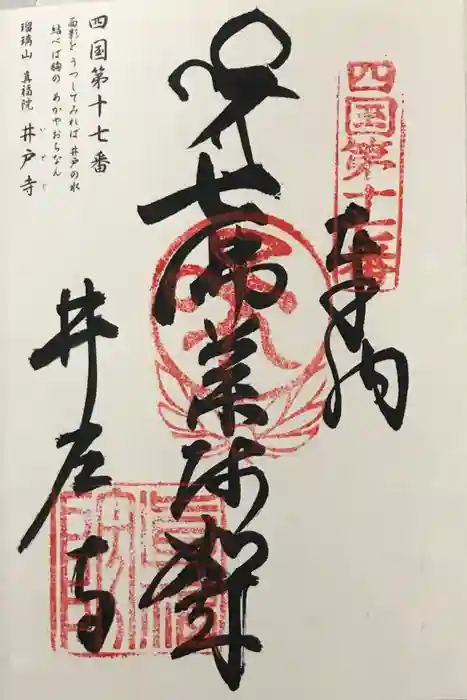 四国第十七番
奉納
七佛薬師
井戸寺
四国第十七番
面影を うつしてみれば 井戸の水
結べば胸の あかやおちなん
瑠璃山 真福院 井戸寺
いどじ